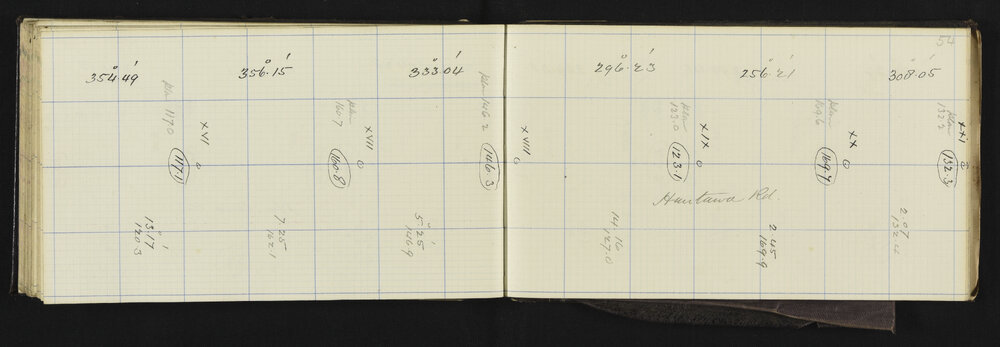 54
354°.49'
356°.15'
333°.04'
296°.23'
256°.21'
308°.05'
Plan 117.0
Plan 160.7
Plan 146.2
Plan 123.0
Plan 169.6
Plan 132.2
XVI
XVII
XVIII
XIX
XX
XXI
117.1
160.8
146.3
123.1
169.7
132.3
13°.17'
120.3
7.25
162.1
5°.25'
146.9
14.16
127.0
2.45
169.9
2.07
132.4